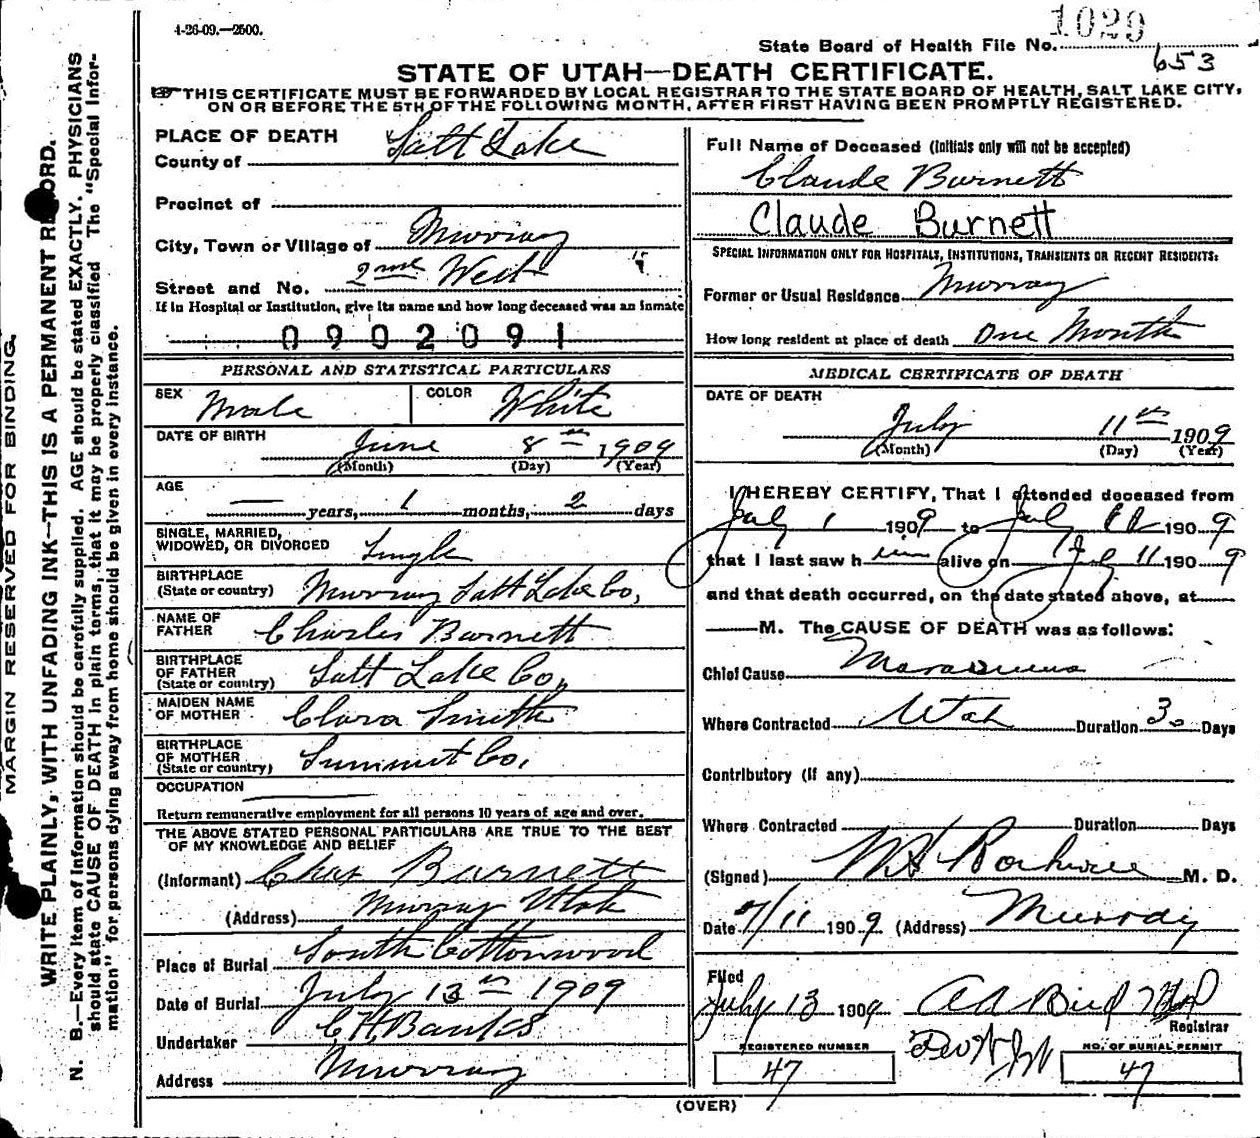 1-26-09.—2500.
1029
State Board of Health File No.
653
STATE OF UTAH—DEATH CERTIFICATE.
THIS CERTIFICATE MUST BE FORWARDED BY LOCAL REGISTRAR TO THE STATE BOARD OF HEALTH, SALT LAKE CITY,
ON OR BEFORE THE 5TH OF THE FOLLOWING MONTH, AFTER FIRST HAVING BEEN PROMPTLY REGISTERED.
MARGIN RESERVED FOR BINDING.
WRITE PLAINLY, WITH UNFADING INK—THIS IS A PERMANENT RECORD.
N. B.—Every item of information should be carefully supplied. AGE should be stated EXACTLY. PHYSICIANS
should state CAUSE OF DEATH in plain terms, that it may be properly classified The "Special Infor-
mation" for persons dying away from home should be given in every instance.
PLACE OF DEATH
County of Salt Lake
Precinct of
City, Town or Village of Murray
Street and No. 2nd West
If in Hospital or Institution, give its name and how long deceased was an inmate
0902091
PERSONAL AND STATISTICAL PARTICULARS
SEX Male COLOR White
DATE OF BIRTH June 8th 1909
(Month) (Day) (Year)
AGE
— years, 1 months, 2 days
SINGLE, MARRIED,
WIDOWED, OR DIVORCED Single
BIRTHPLACE
(State or country) Murray Salt Lake Co,
NAME OF
FATHER Charles Burnett
BIRTHPLACE
OF FATHER
(State or country) Salt Lake Co,
MAIDEN NAME
OF MOTHER Clara Smith
BIRTHPLACE
OF MOTHER
(State or country) Summit Co.
OCCUPATION
Return remunerative employment for all persons 10 years of age and over.
THE ABOVE STATED PERSONAL PARTICULARS ARE TRUE TO THE BEST
OF MY KNOWLEDGE AND BELIEF
(Informant) Chas Burnett
(Address) Murray Utah
Place of Burial South Cottonwood
Date of Burial July 13th 1909
Undertaker C.H. Banks
Address Murray
Full Name of Deceased (Initials only will not be accepted)
Claude Burnett
Claude Burnett
SPECIAL INFORMATION ONLY FOR HOSPITALS, INSTITUTIONS, TRANSIENTS OR RECENT RESIDENTS:
Former or Usual Residence Murray
How long resident at place of death One Month
MEDICAL CERTIFICATE OF DEATH
DATE OF DEATH
July 11th 1909
(Month) (Day) (Year)
I HEREBY CERTIFY, That I attended deceased from
July 1 1909 to July 11 1909
that I last saw him alive on July 11 1909
and that death occurred, on the date stated above, at
M. The CAUSE OF DEATH was as follows:
Chief Cause Marasmus
Where Contracted Utah Duration 30 Days
Contributory (if any)
Where Contracted Duration Days
(Signed) M. D.
Date 7/11 1909 (Address) Murray
Filed
July 13 1909
Registrar
REGISTERED NUMBER
47
NO. OF BURIAL PERMIT
47
(OVER)